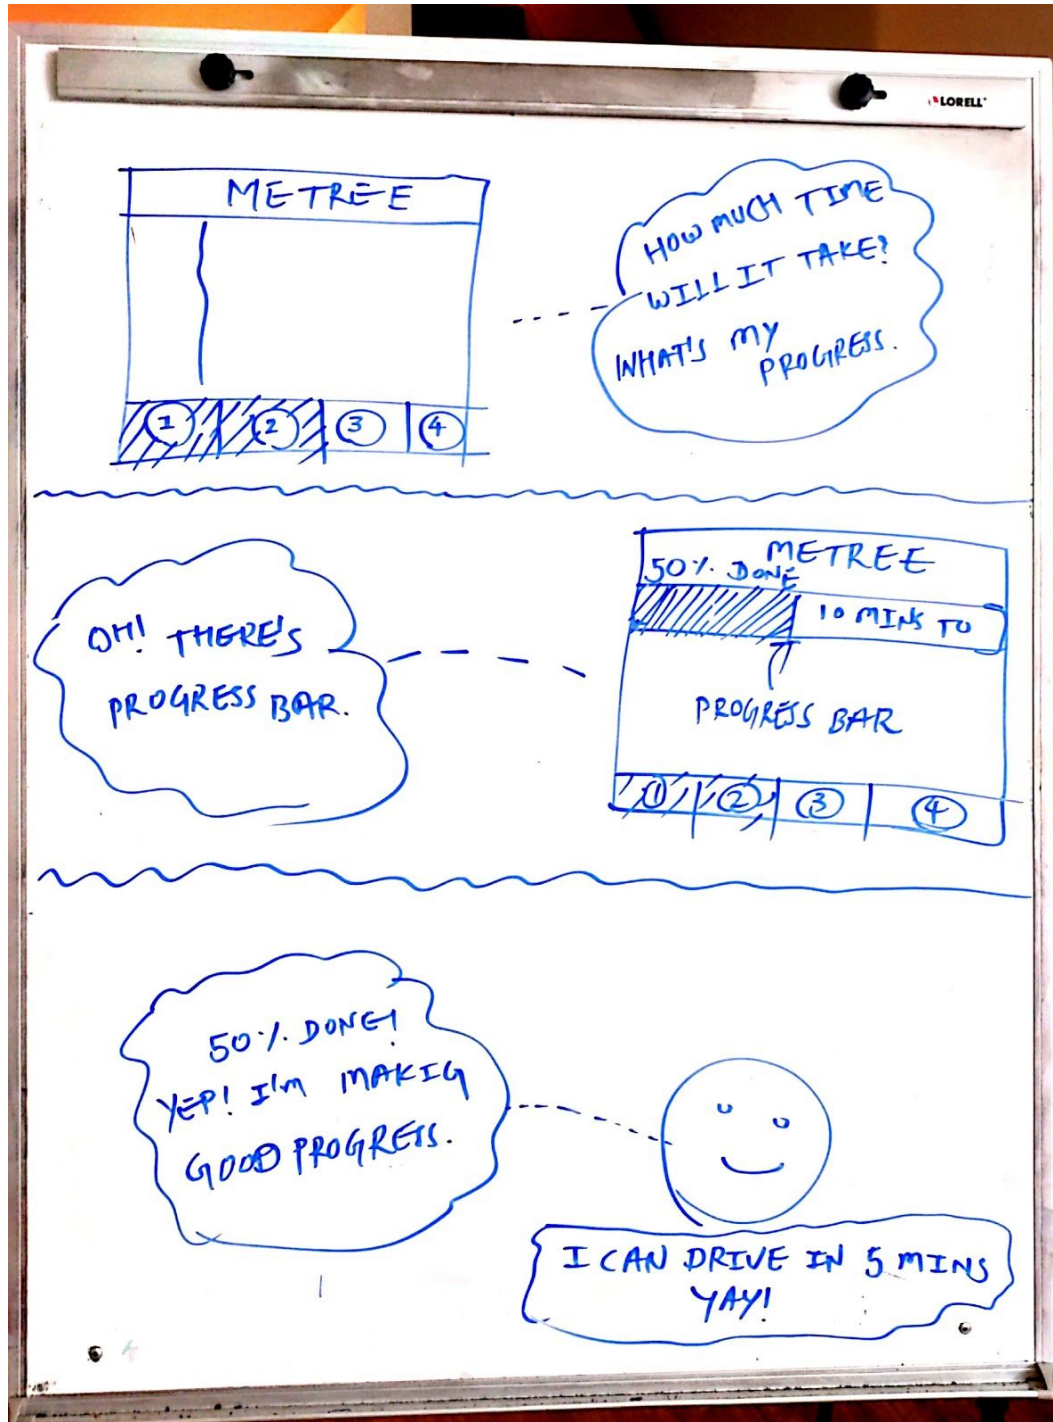 LORELL
METREE
HOW MUCH TIME
WILL IT TAKE?
WHAT'S MY
PROGRESS.
1 2 3 4
OH! THERE'S
PROGRESS BAR.
METREE
50% DONE
10 MINS TO
PROGRESS BAR
1 2 3 4
50% DONE!
YEP! I'M MAKIG
GOOD PROGRESS.
I CAN DRIVE IN 5 MINS
YAY!